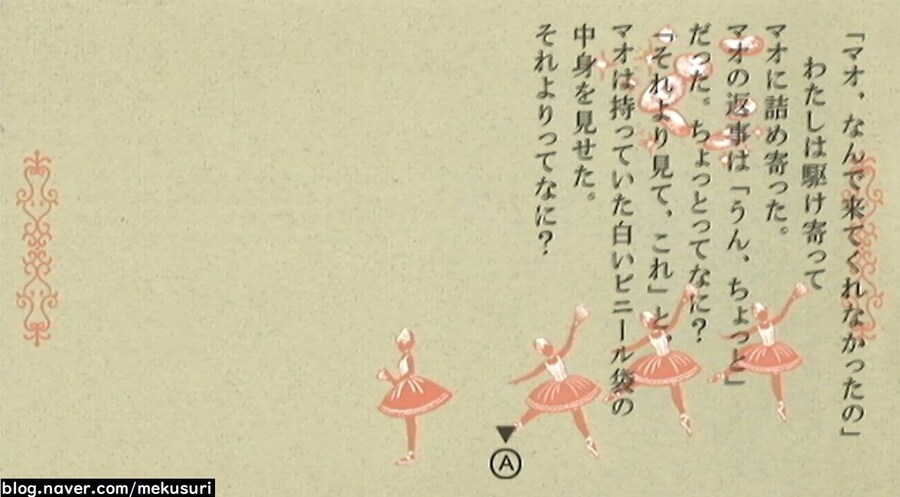 「マオ、なんで来てくれなかったの」
わたしは駆け寄って
マオに詰め寄った。
マオの返事は「うん、ちょっと」
だった。ちょっとってなに？
「それより見て、これ」と、
マオは持っていた白いビニール袋の
中身を見せた。
それよりってなに？
A
blog.naver.com/mekusuri